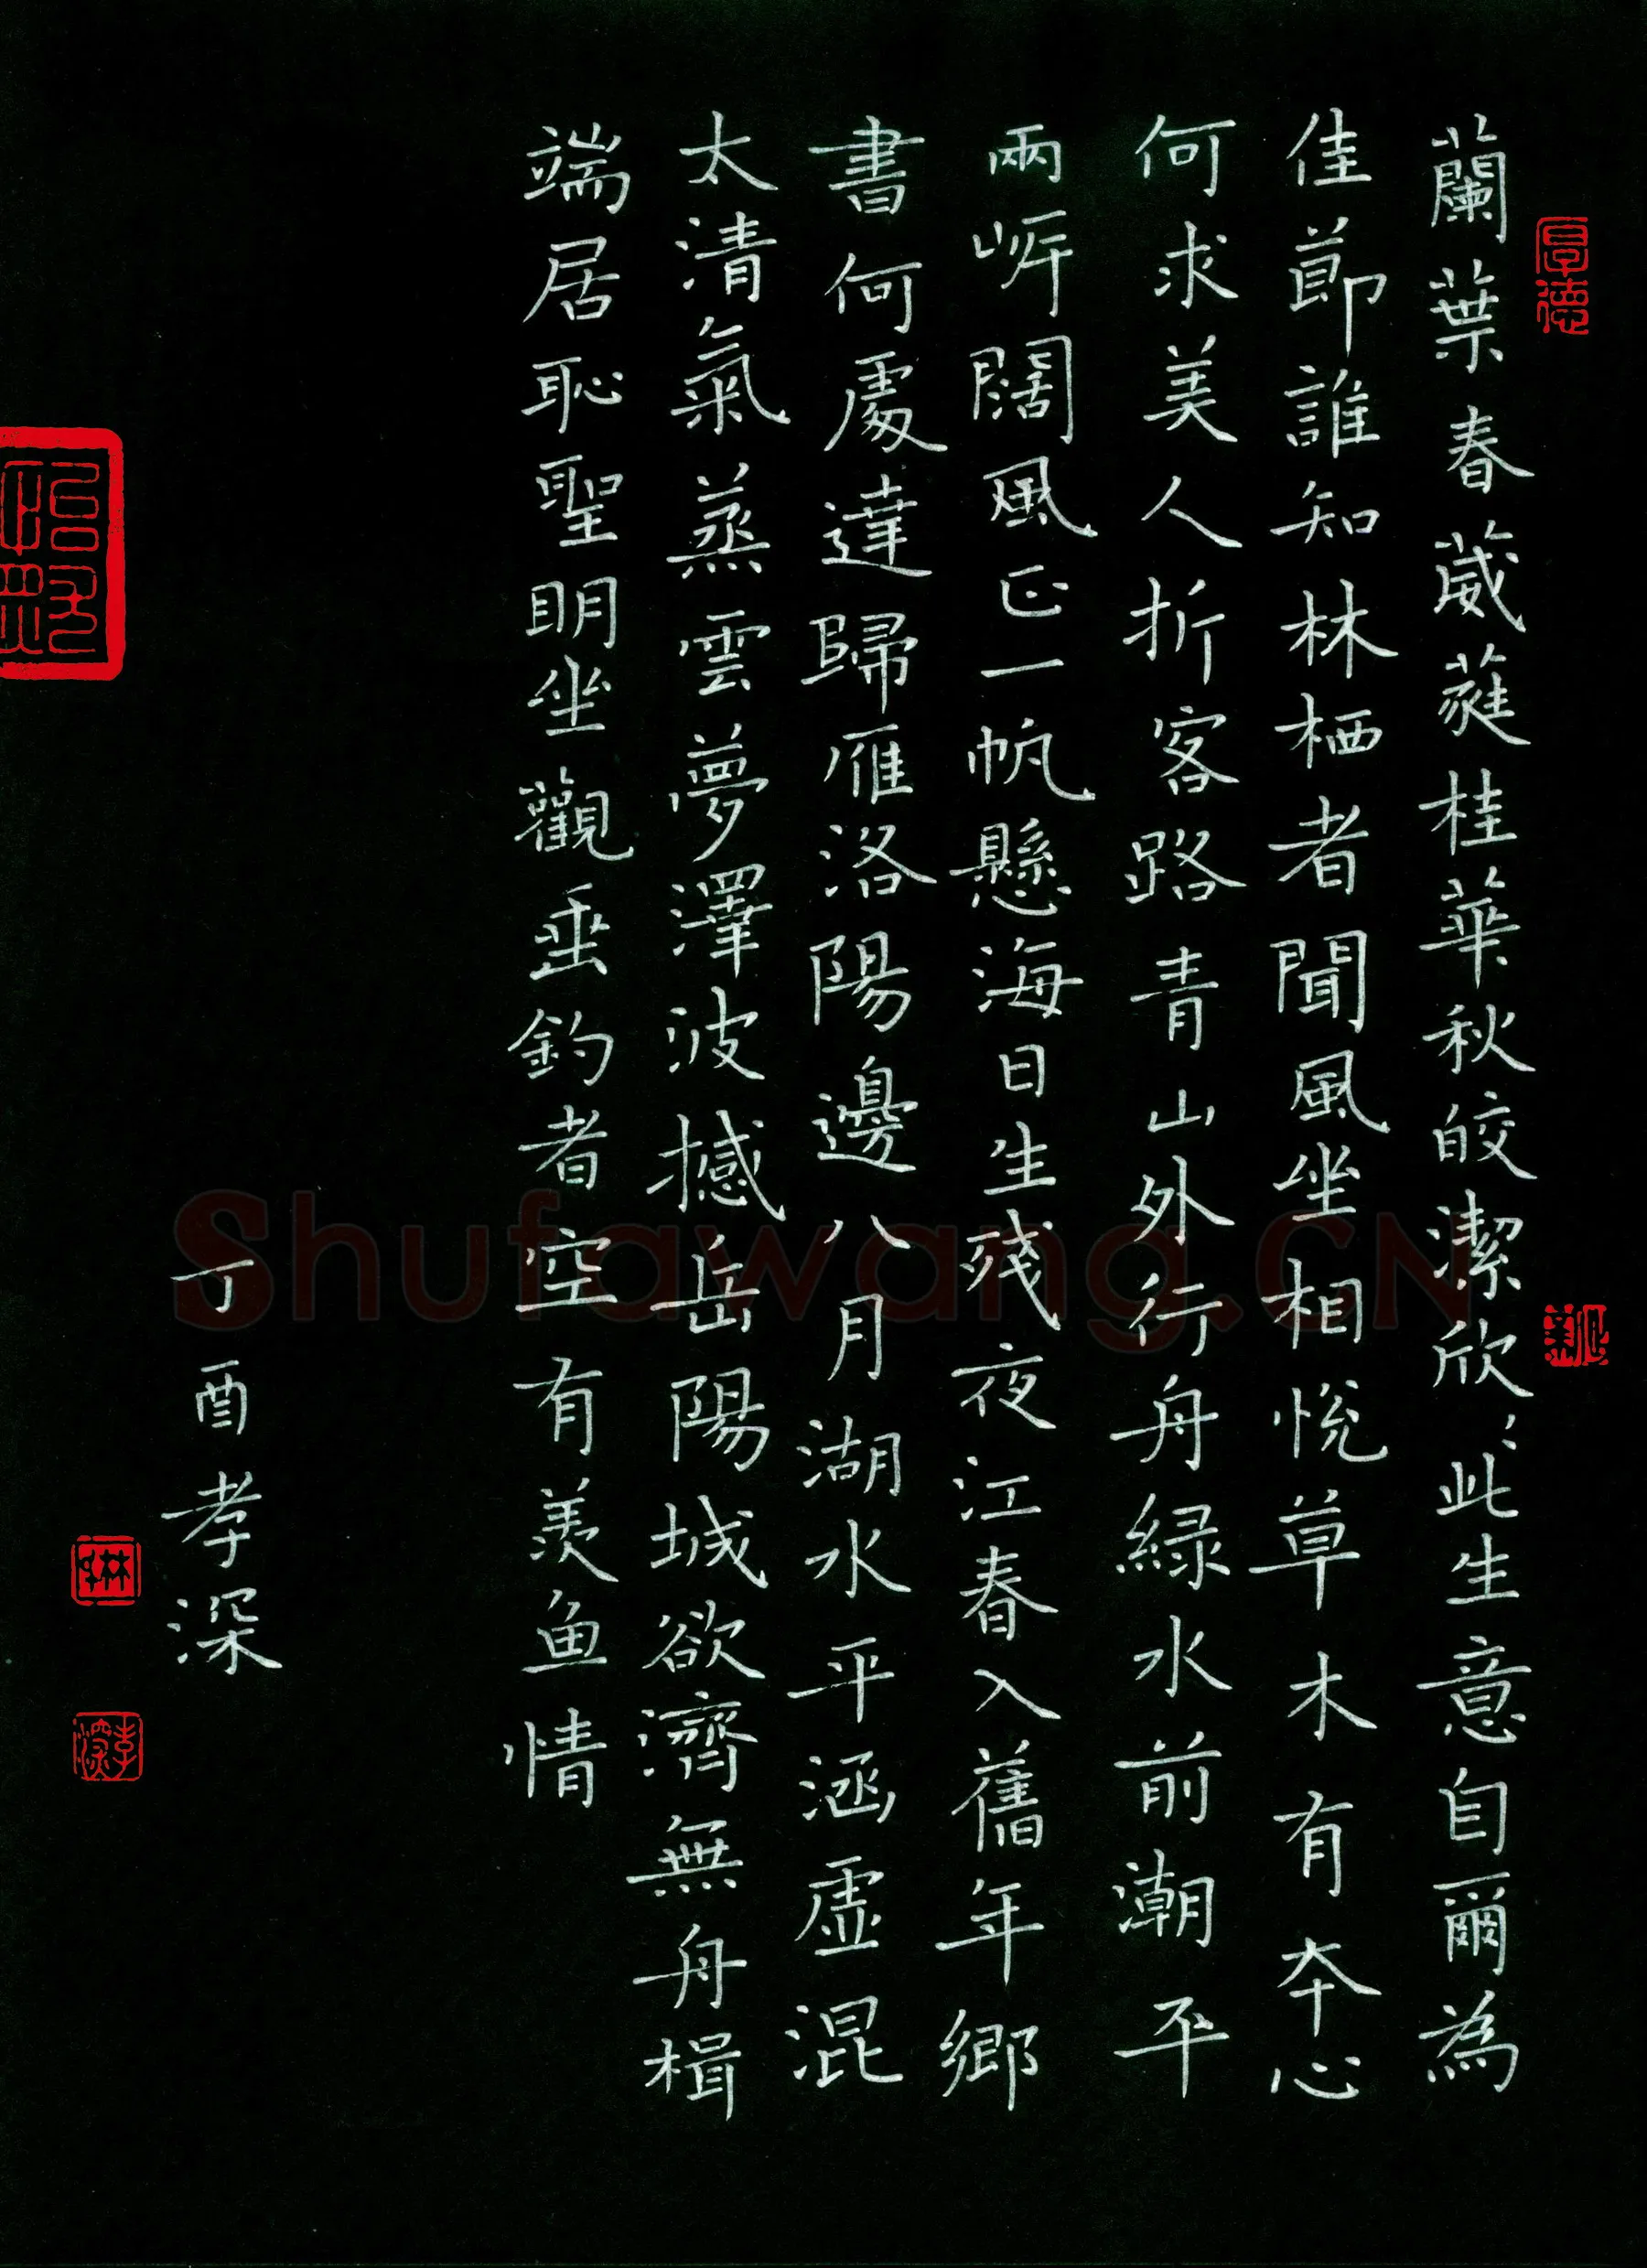 蘭葉春葳蕤桂華秋皎潔欣〻此生意自爾為
佳節誰知林栖者聞風坐相悅草木有本心
何求美人折客路青山外行舟綠水前潮平
兩岸闊風正一帆懸海日生殘夜江春入舊年鄉
書何處達歸雁洛陽邊八月湖水平涵虛混
太清氣蒸雲夢澤波撼岳陽城欲濟無舟楫
端居恥聖明坐觀垂釣者空有羨鱼情
丁酉孝深
厚德
孝深
Shufawang.CN